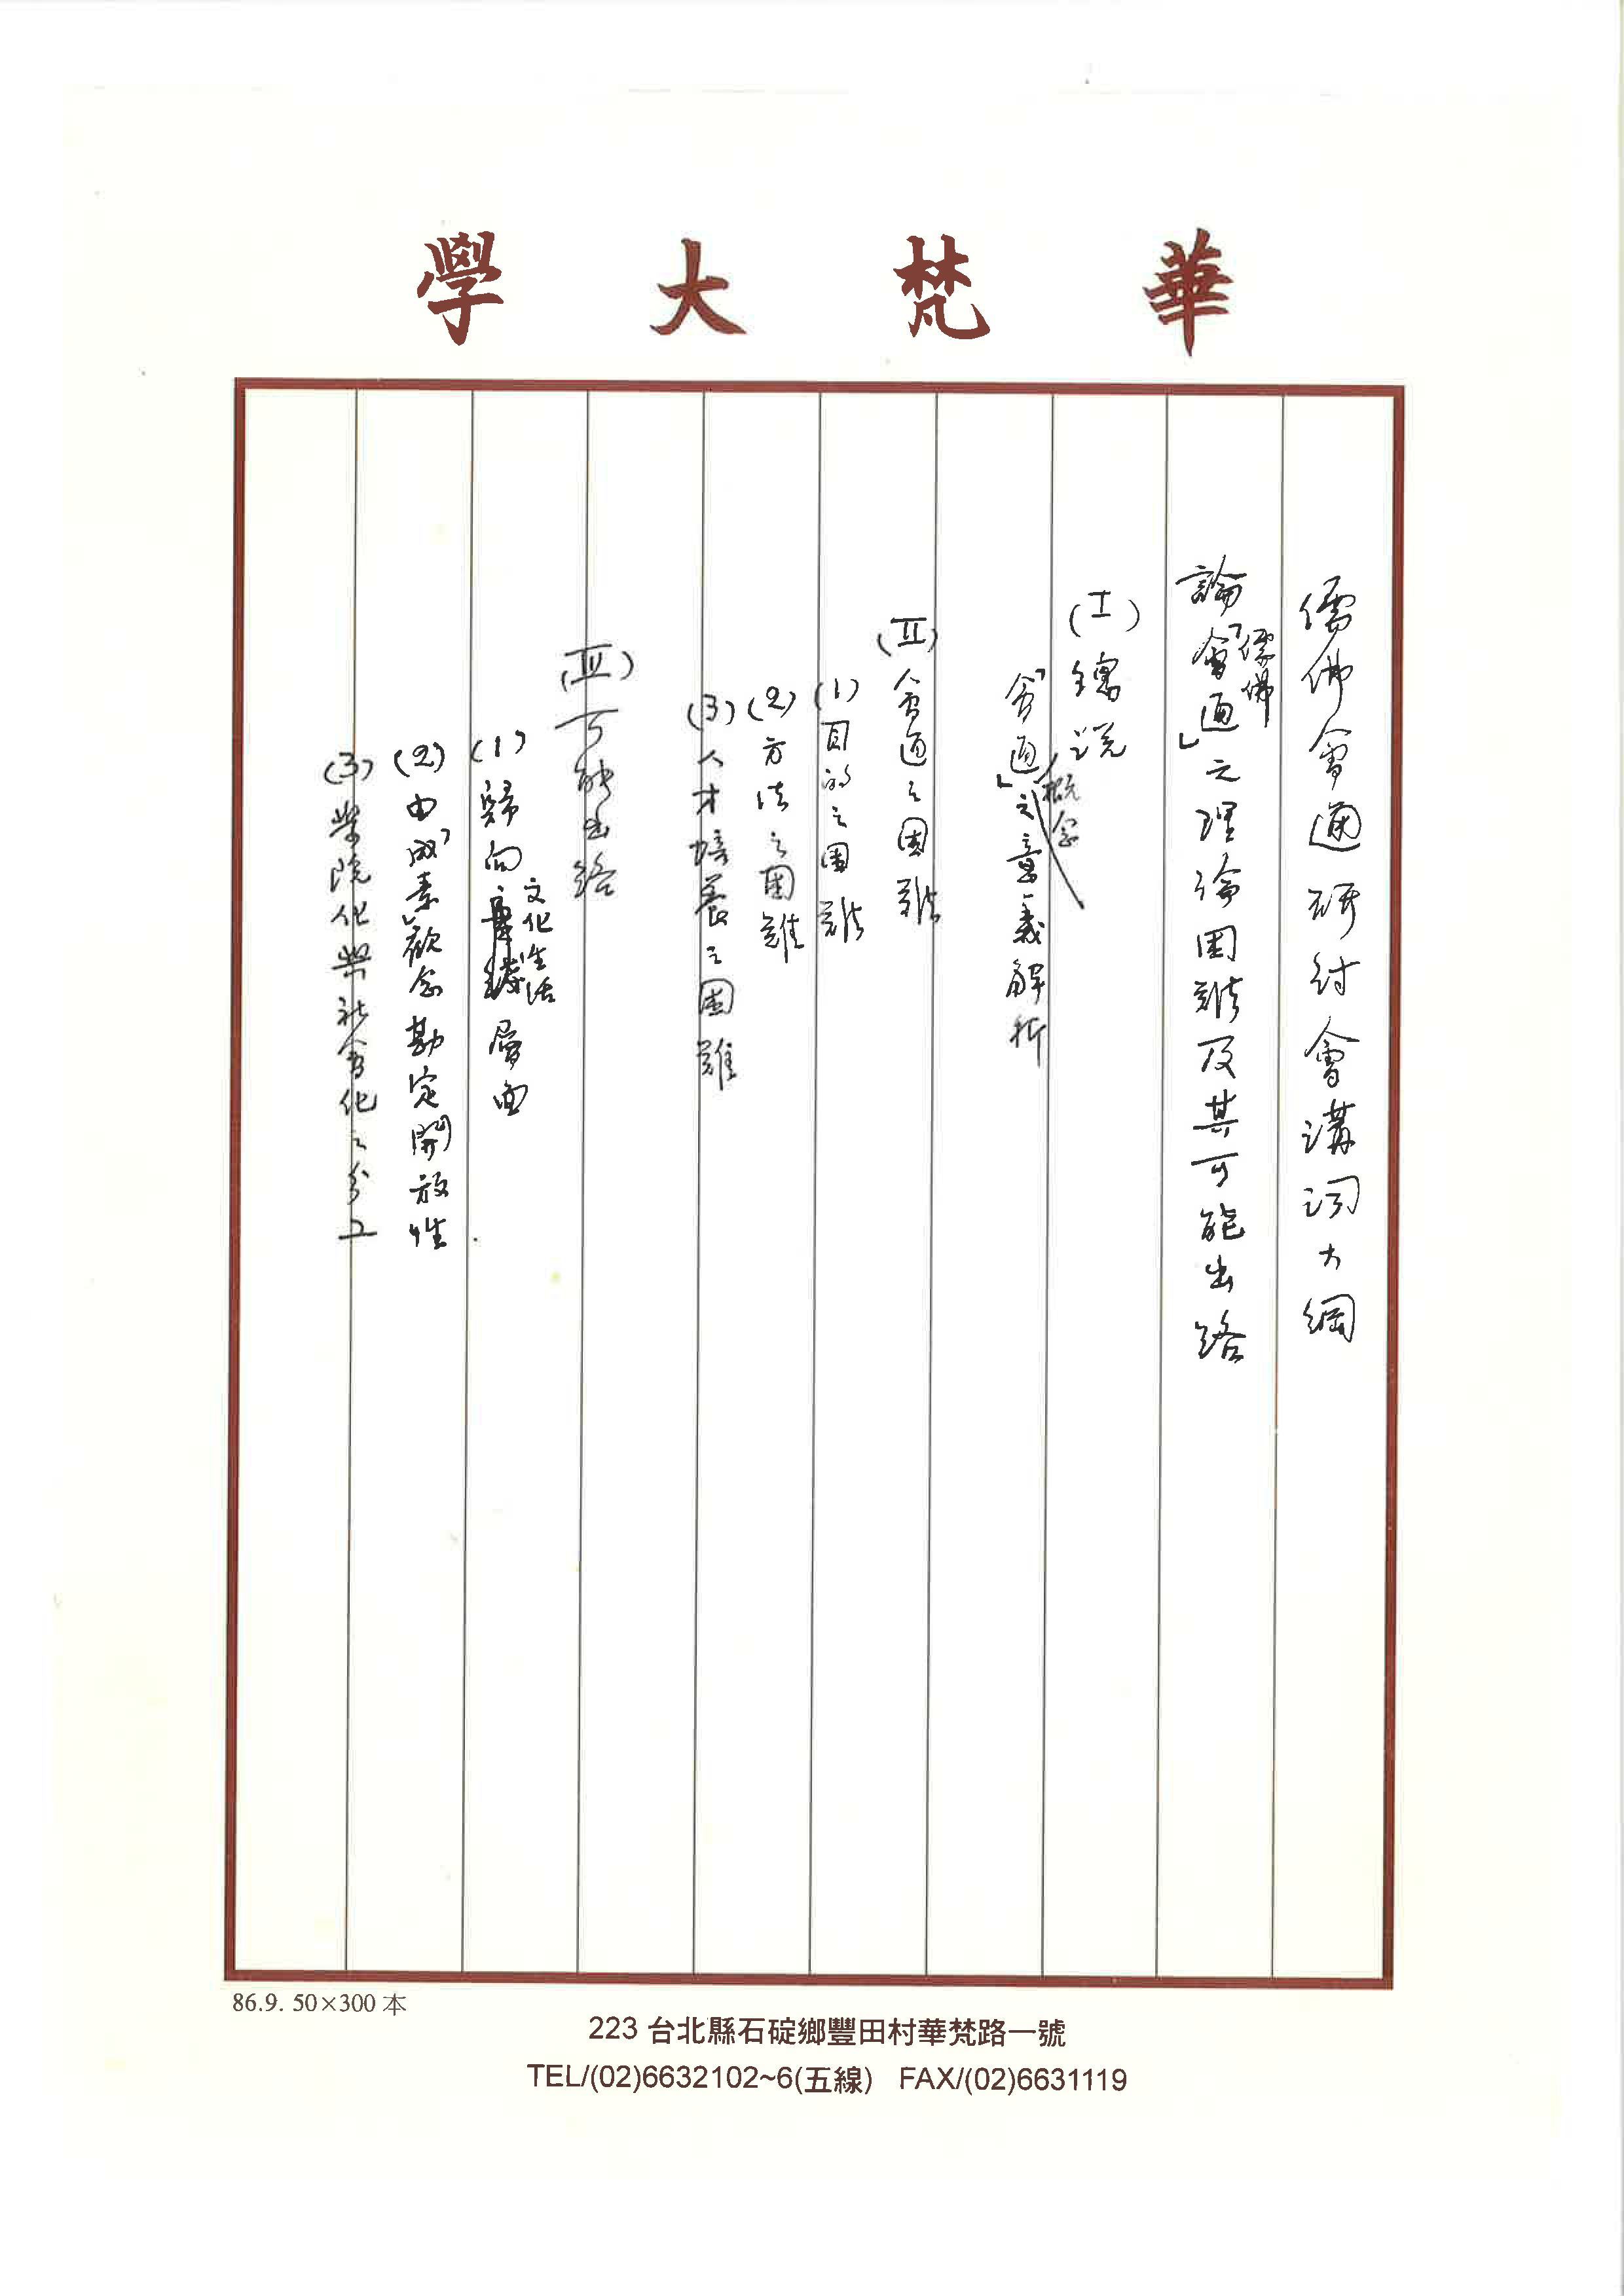 華梵大學
儒佛會通研討會講詞大綱
論「儒佛會通」之理論困難及其可能出路
(I) 總說
「會通」概念之意義解析
(II) 會通之困難
(1) 目的之困難
(2) 方法之困難
(3) 人才培養之困難
(III) 可能出路
(1) 歸向文化生活層面
(2) 由「成素」觀念勘定開放性
(3) 學院化與社會化之分工
86.9. 50×300 本
223 台北縣石碇鄉豐田村華梵路一號
TEL/(02)6632102~6(五線) FAX/(02)6631119